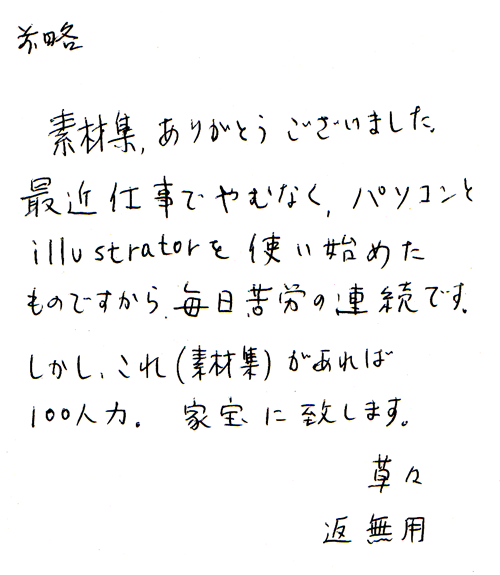 前略
素材集,ありがとうございました。
最近仕事でやむなく,パソコンと
illustratorを使い始めた
ものですから,毎日苦労の連続です。
しかし、これ(素材集)があれば
100人力. 家宝に致します。
草々
返無用